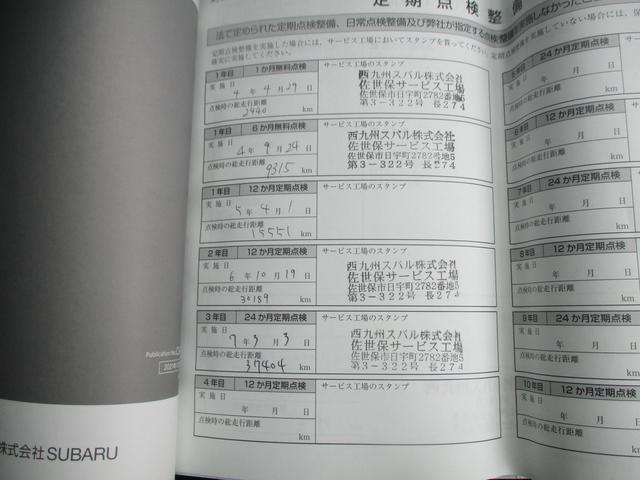 定期点検整備
法で定められた定期点検整備、日常点検整備及び弊社が指定する点検整備を実施しなかったこ
定期点検整備を実施した場合には、サービス工場においてスタンプを貰ってください。
確実に実施してください。
1年目 1か月無料点検 サービス工場のスタンプ
実施日 4年4月29日
点検時の総走行距離 2440 km
西九州スバル株式会社
佐世保サービス工場
佐世保市日宇町2782番地5
第3-322号 長274
1年目 6か月無料点検 サービス工場のスタンプ
実施日 4年9月24日
点検時の総走行距離 9315 km
西九州スバル株式会社
佐世保サービス工場
佐世保市日宇町2782番地5
第3-322号 長274
1年目 12か月定期点検 サービス工場のスタンプ
実施日 5年4月1日
点検時の総走行距離 15551 km
2年目 12か月定期点検 サービス工場のスタンプ
実施日 6年10月19日
点検時の総走行距離 30189 km
西九州スバル株式会社
佐世保サービス工場
佐世保市日宇町2782番地5
第3-322号 長274
3年目 24か月定期点検 サービス工場のスタンプ
実施日 7年3月3日
点検時の総走行距離 37404 km
西九州スバル株式会社
佐世保サービス工場
佐世保市日宇町2782番地5
第3-322号 長274
4年目 12か月定期点検 サービス工場のスタンプ
実施日 年 月 日
点検時の総走行距離 km
24か月定期点検
年 月 日
点検時の総走行距離
6年目 12か月定期点検
実施日 年 月
点検時の総走行距離
7年目 24か月定期点検
実施日 年 月
点検時の総走行距離
8年目 12か月定期点検
実施日 年 月
点検時の総走行距離
9年目 24か月定期点検
実施日 年 月
点検時の総走行距離
10年目 12か月定期点検
実施日 年 月
点検時の総走行距離
Publication No.
株式会社SUBARU